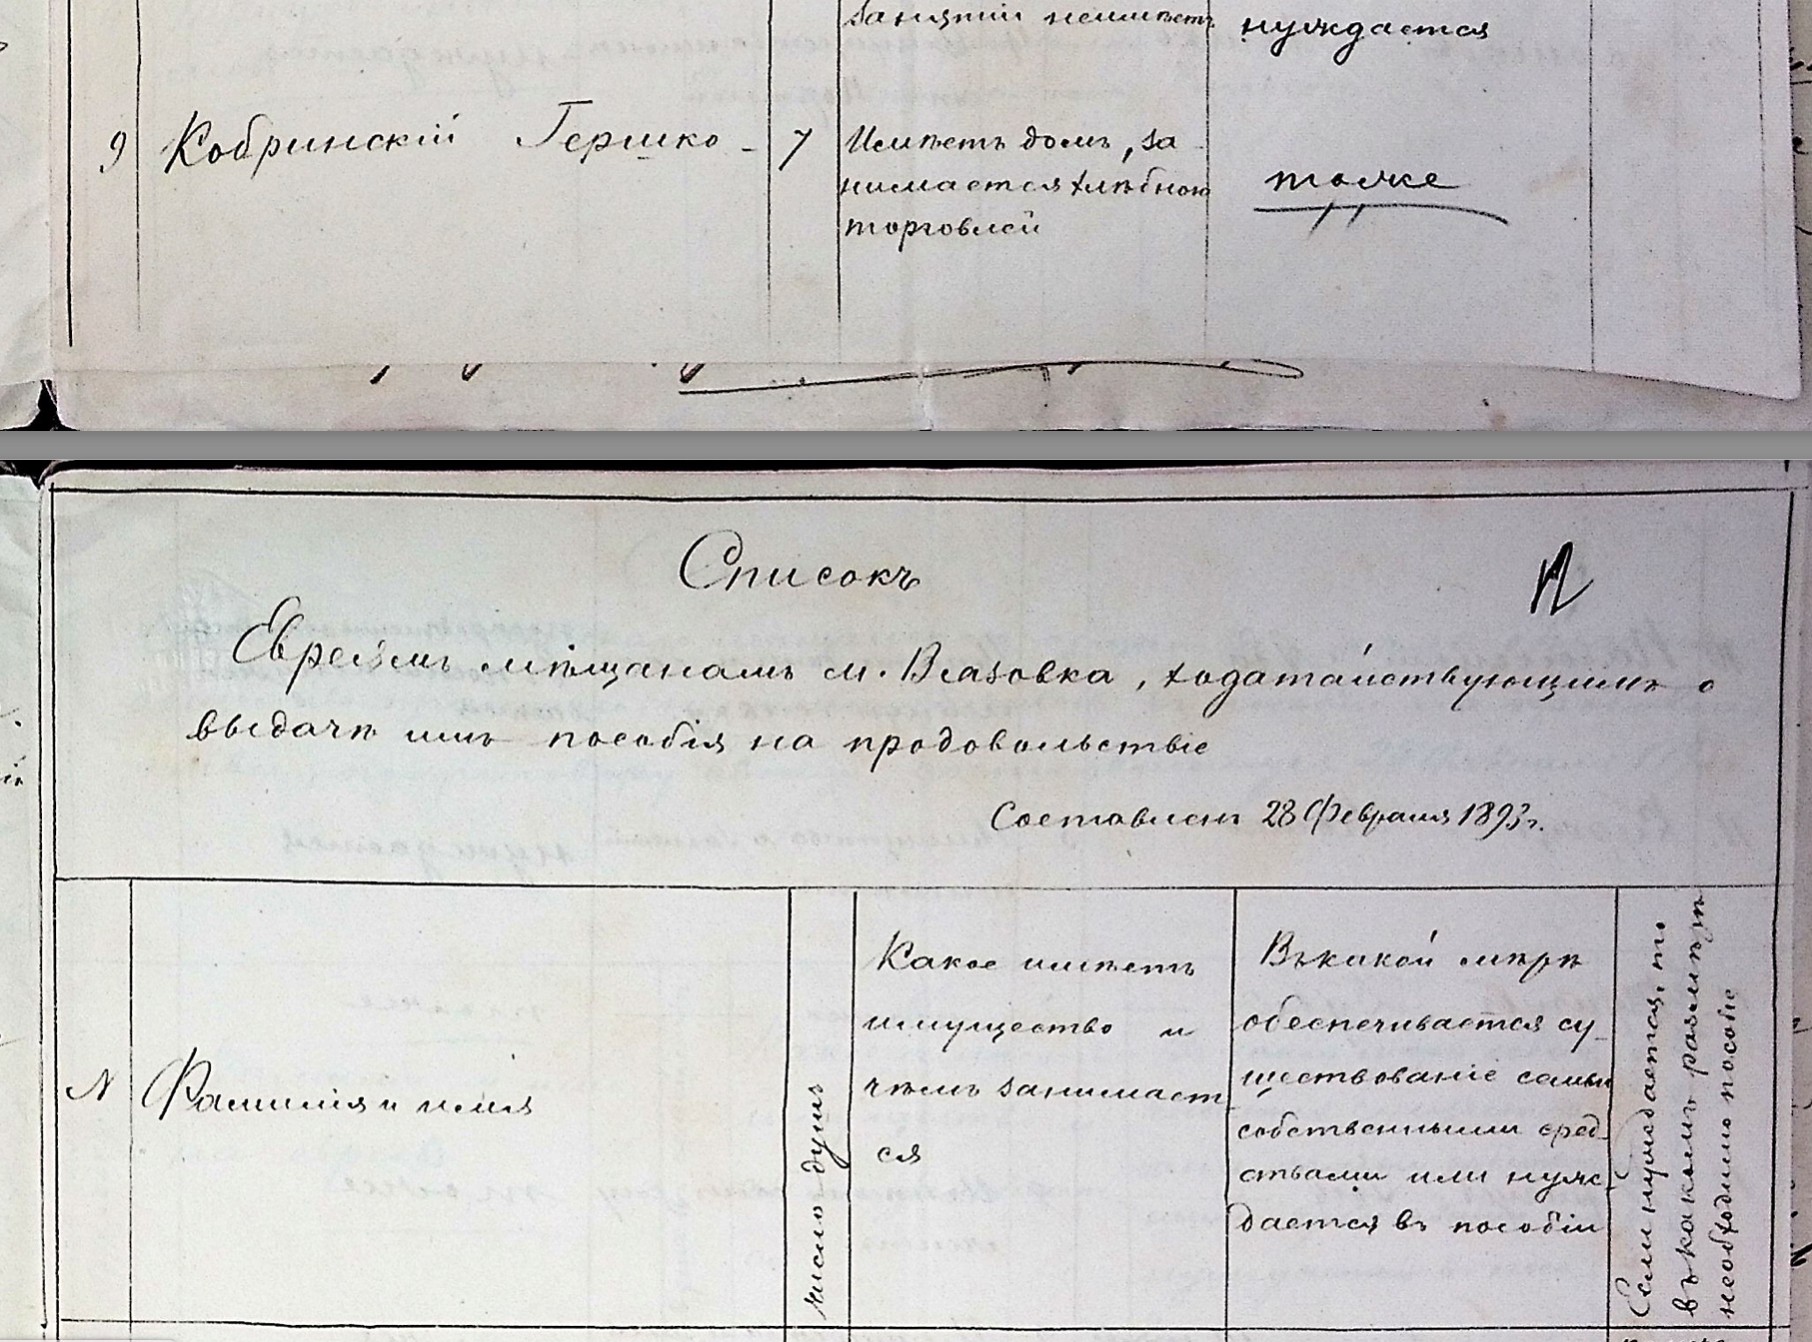 занятій неимѣетъ
нуждается
9 Кобринскій Гершко - 7 Имѣетъ домъ, за-
нимается хлѣбною
торговлей
тоже
Списокъ
Евреямъ мѣщанамъ м. Власовка, ходатайствующимъ о
выдачѣ имъ пособія на продовольствіе
Составленъ 28 Февраля 1893 г.
N
Фамилія и имя
число душъ
Какое имѣетъ
имущество и
чѣмъ занимает-
ся
Въ какой мѣрѣ
обеспечивается су-
ществованіе семьи
собственными сред-
ствами или нуж-
дается въ пособіи
Если нуждается, то
въ какомъ размѣрѣ
необходимо пособіе